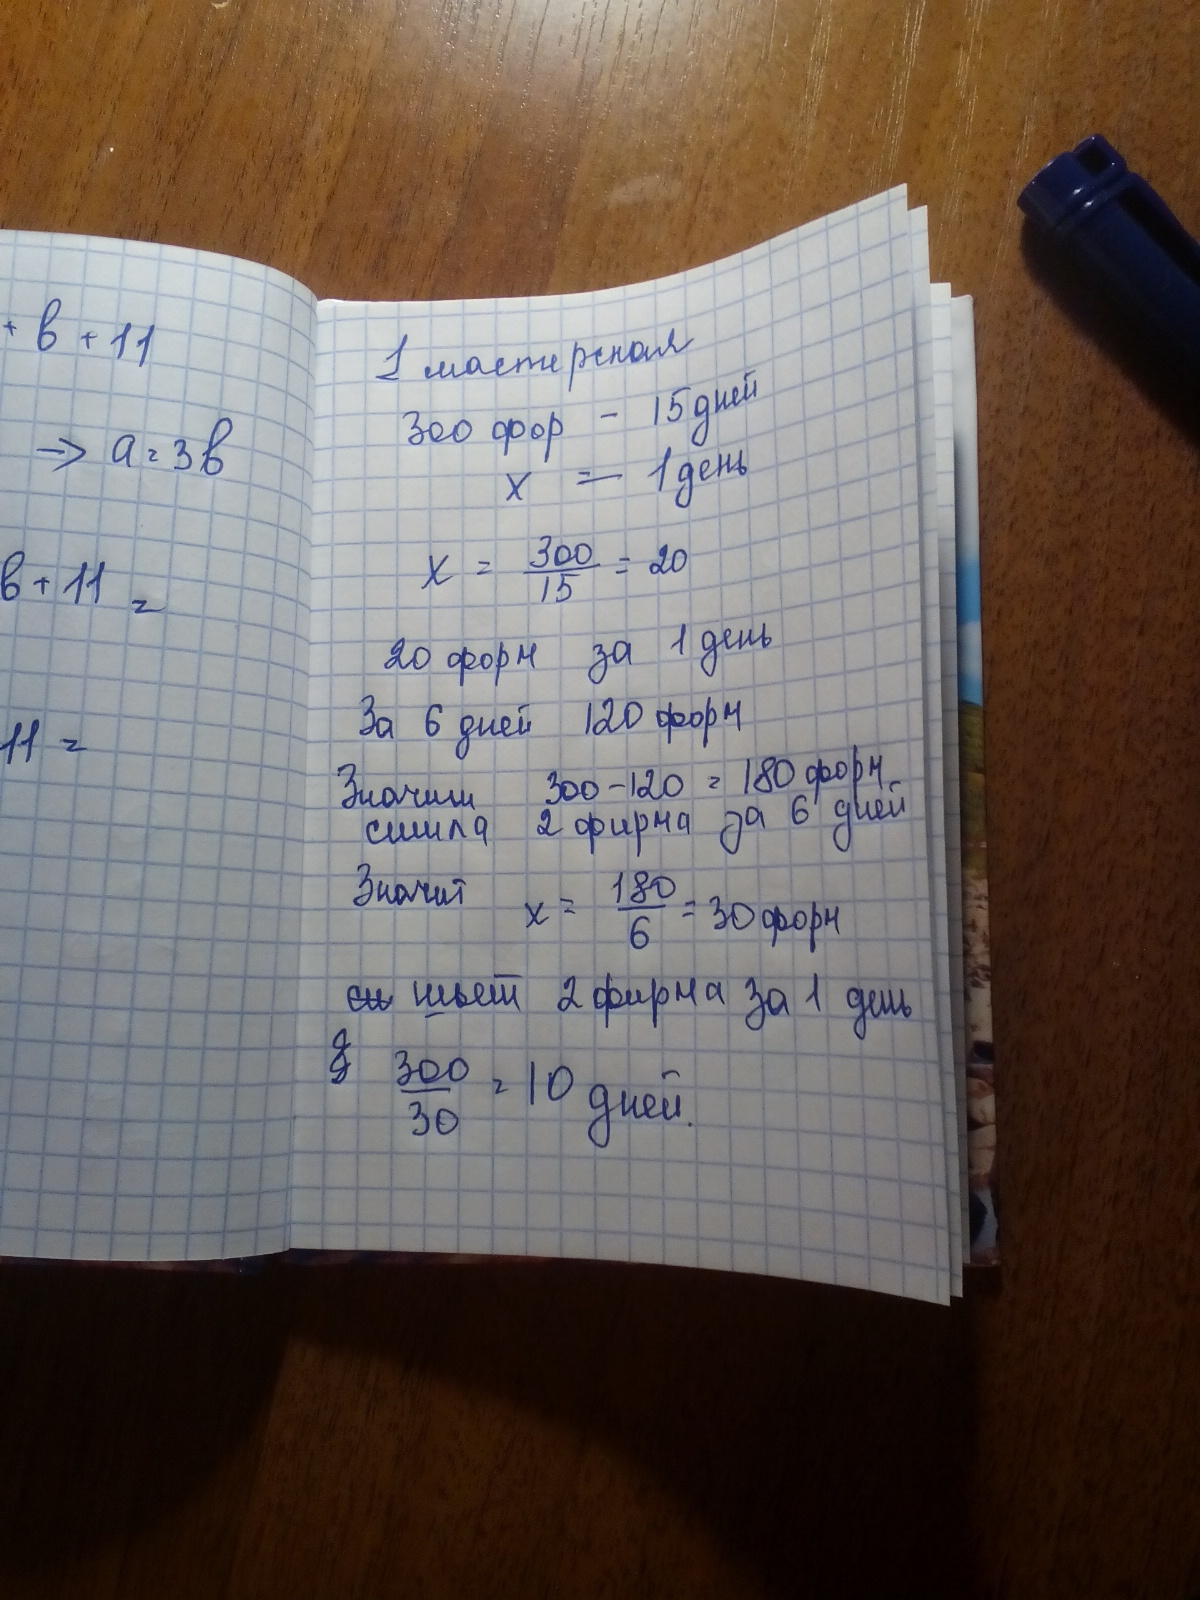 + в + 11
→ a = 3в
в + 11 =
11 =
1 мастерская
300 фор - 15 дней
x = — 1 день
x = 300/15 = 20
20 форм за 1 день
За 6 дней 120 форм
Значит 300 - 120 = 180 форм
сшила 2 фирма за 6 дней
Значит x = 180/6 = 30 форм
шьет 2 фирма за 1 день
300/30 = 10 дней.